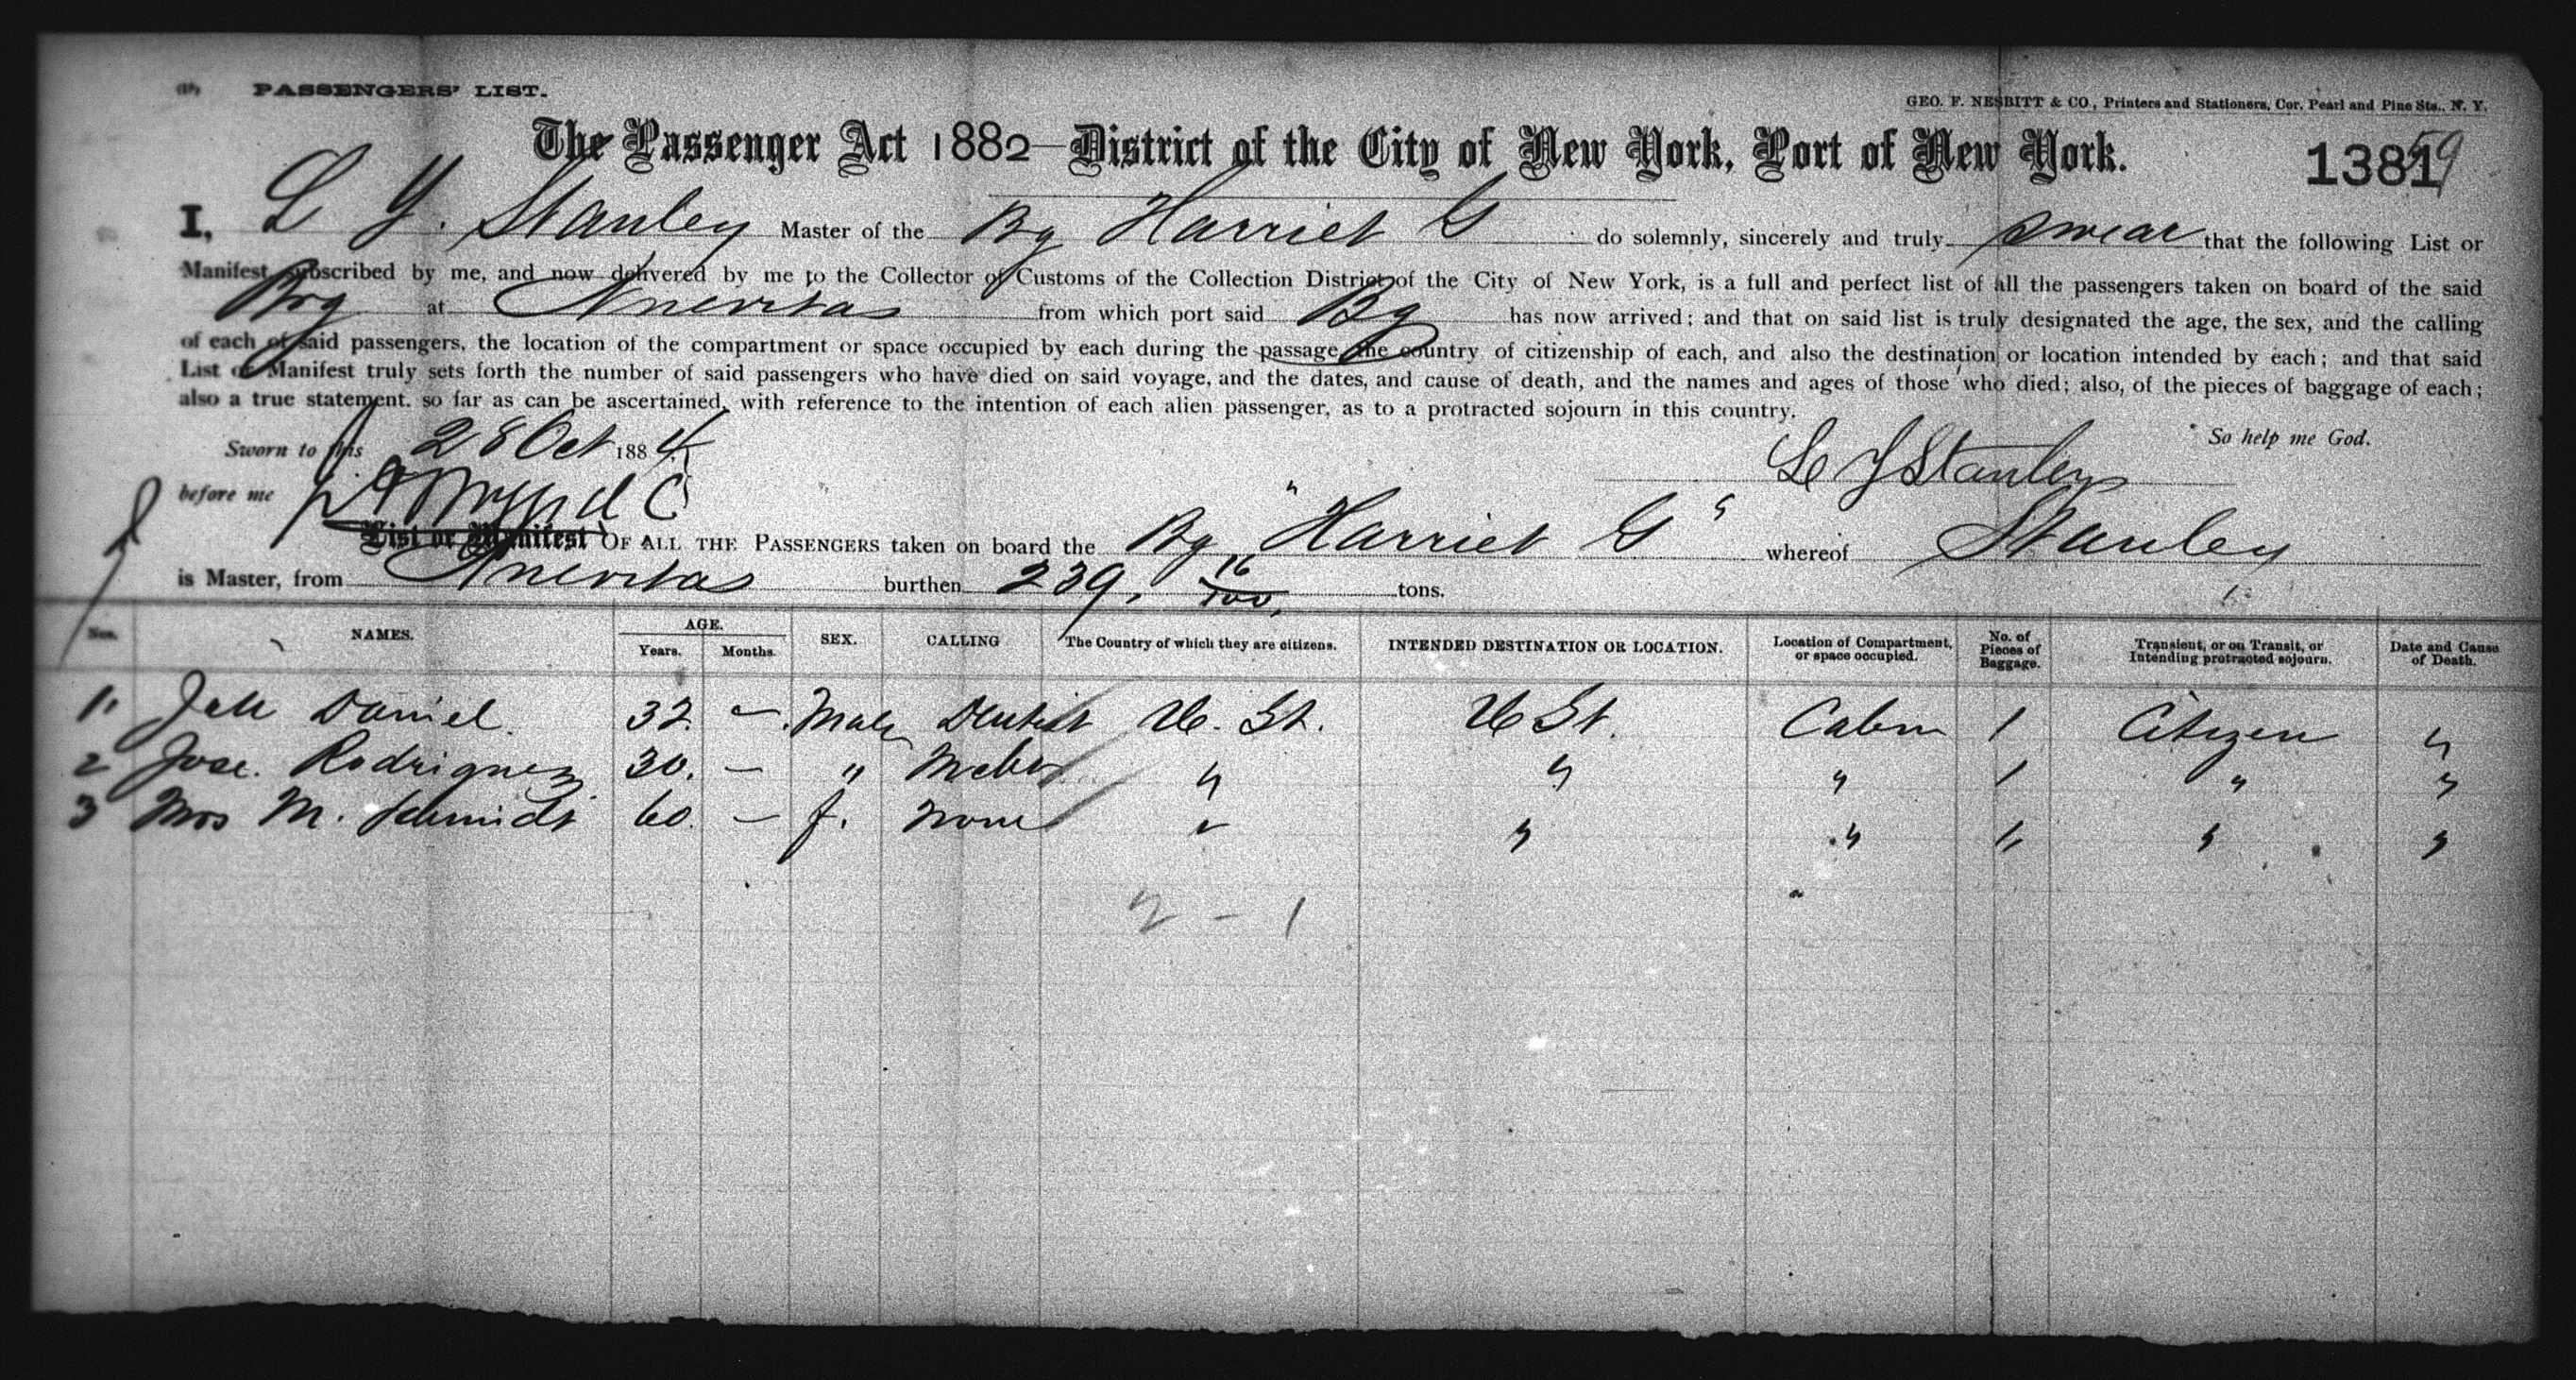 PASSENGERS' LIST.
GEO. F. NESBITT & CO., Printers and Stationers, Cor. Pearl and Pine Sts., N. Y.
The Passenger Act 1882—District of the City of New York, Port of New York.
1381 59
I, L Y. Stanley Master of the Bg Harriet G do solemnly, sincerely and truly swear that the following List or
Manifest subscribed by me, and now delivered by me to the Collector of Customs of the Collection District of the City of New York, is a full and perfect list of all the passengers taken on board of the said
Brg at Nuevitas from which port said Bg has now arrived; and that on said list is truly designated the age, the sex, and the calling
of each of said passengers, the location of the compartment or space occupied by each during the passage, the country of citizenship of each, and also the destination or location intended by each; and that said
List or Manifest truly sets forth the number of said passengers who have died on said voyage, and the dates, and cause of death, and the names and ages of those who died; also, of the pieces of baggage of each;
also a true statement, so far as can be ascertained, with reference to the intention of each alien passenger, as to a protracted sojourn in this country.
So help me God.
Sworn to this 28 Oct 1884
Stanley
before me
List or Manifest OF ALL THE PASSENGERS taken on board the Bg "Harriet G" whereof Stanley
is Master, from Nuevitas burthen 239. 16/100 tons.
Nos. NAMES. AGE. Years. Months. SEX. CALLING The Country of which they are citizens. INTENDED DESTINATION OR LOCATION. Location of Compartment, or space occupied. No. of Pieces of Baggage. Transient, or on Transit, or Intending protracted sojourn. Date and Cause of Death.
1. Daniel 32 — Male Dentist U. St. U St. Cabin 1 Citizen "
2 Jose Rodriguez 30. — " " " " 1 " "
3 Mrs M. Schmidt 60 — f. None " " " 1 " "
2 - 1